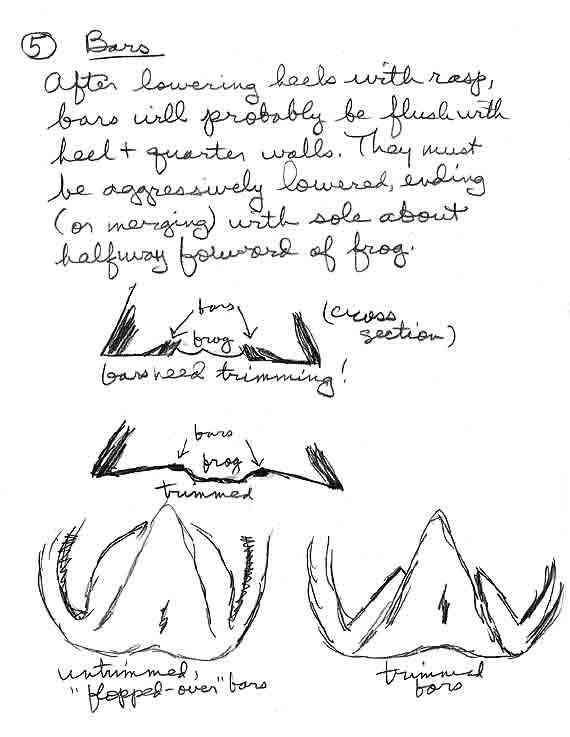 5 Bars
After lowering heels with rasp,
bars will probably be flush with
heel + quarter walls. They must
be aggressively lowered, ending
(or merging) with sole about
halfway forward of frog.
bars
(cross
section)
frog
bars need trimming!
bars
frog
trimmed
untrimmed,
"flopped-over" bars
trimmed
bars